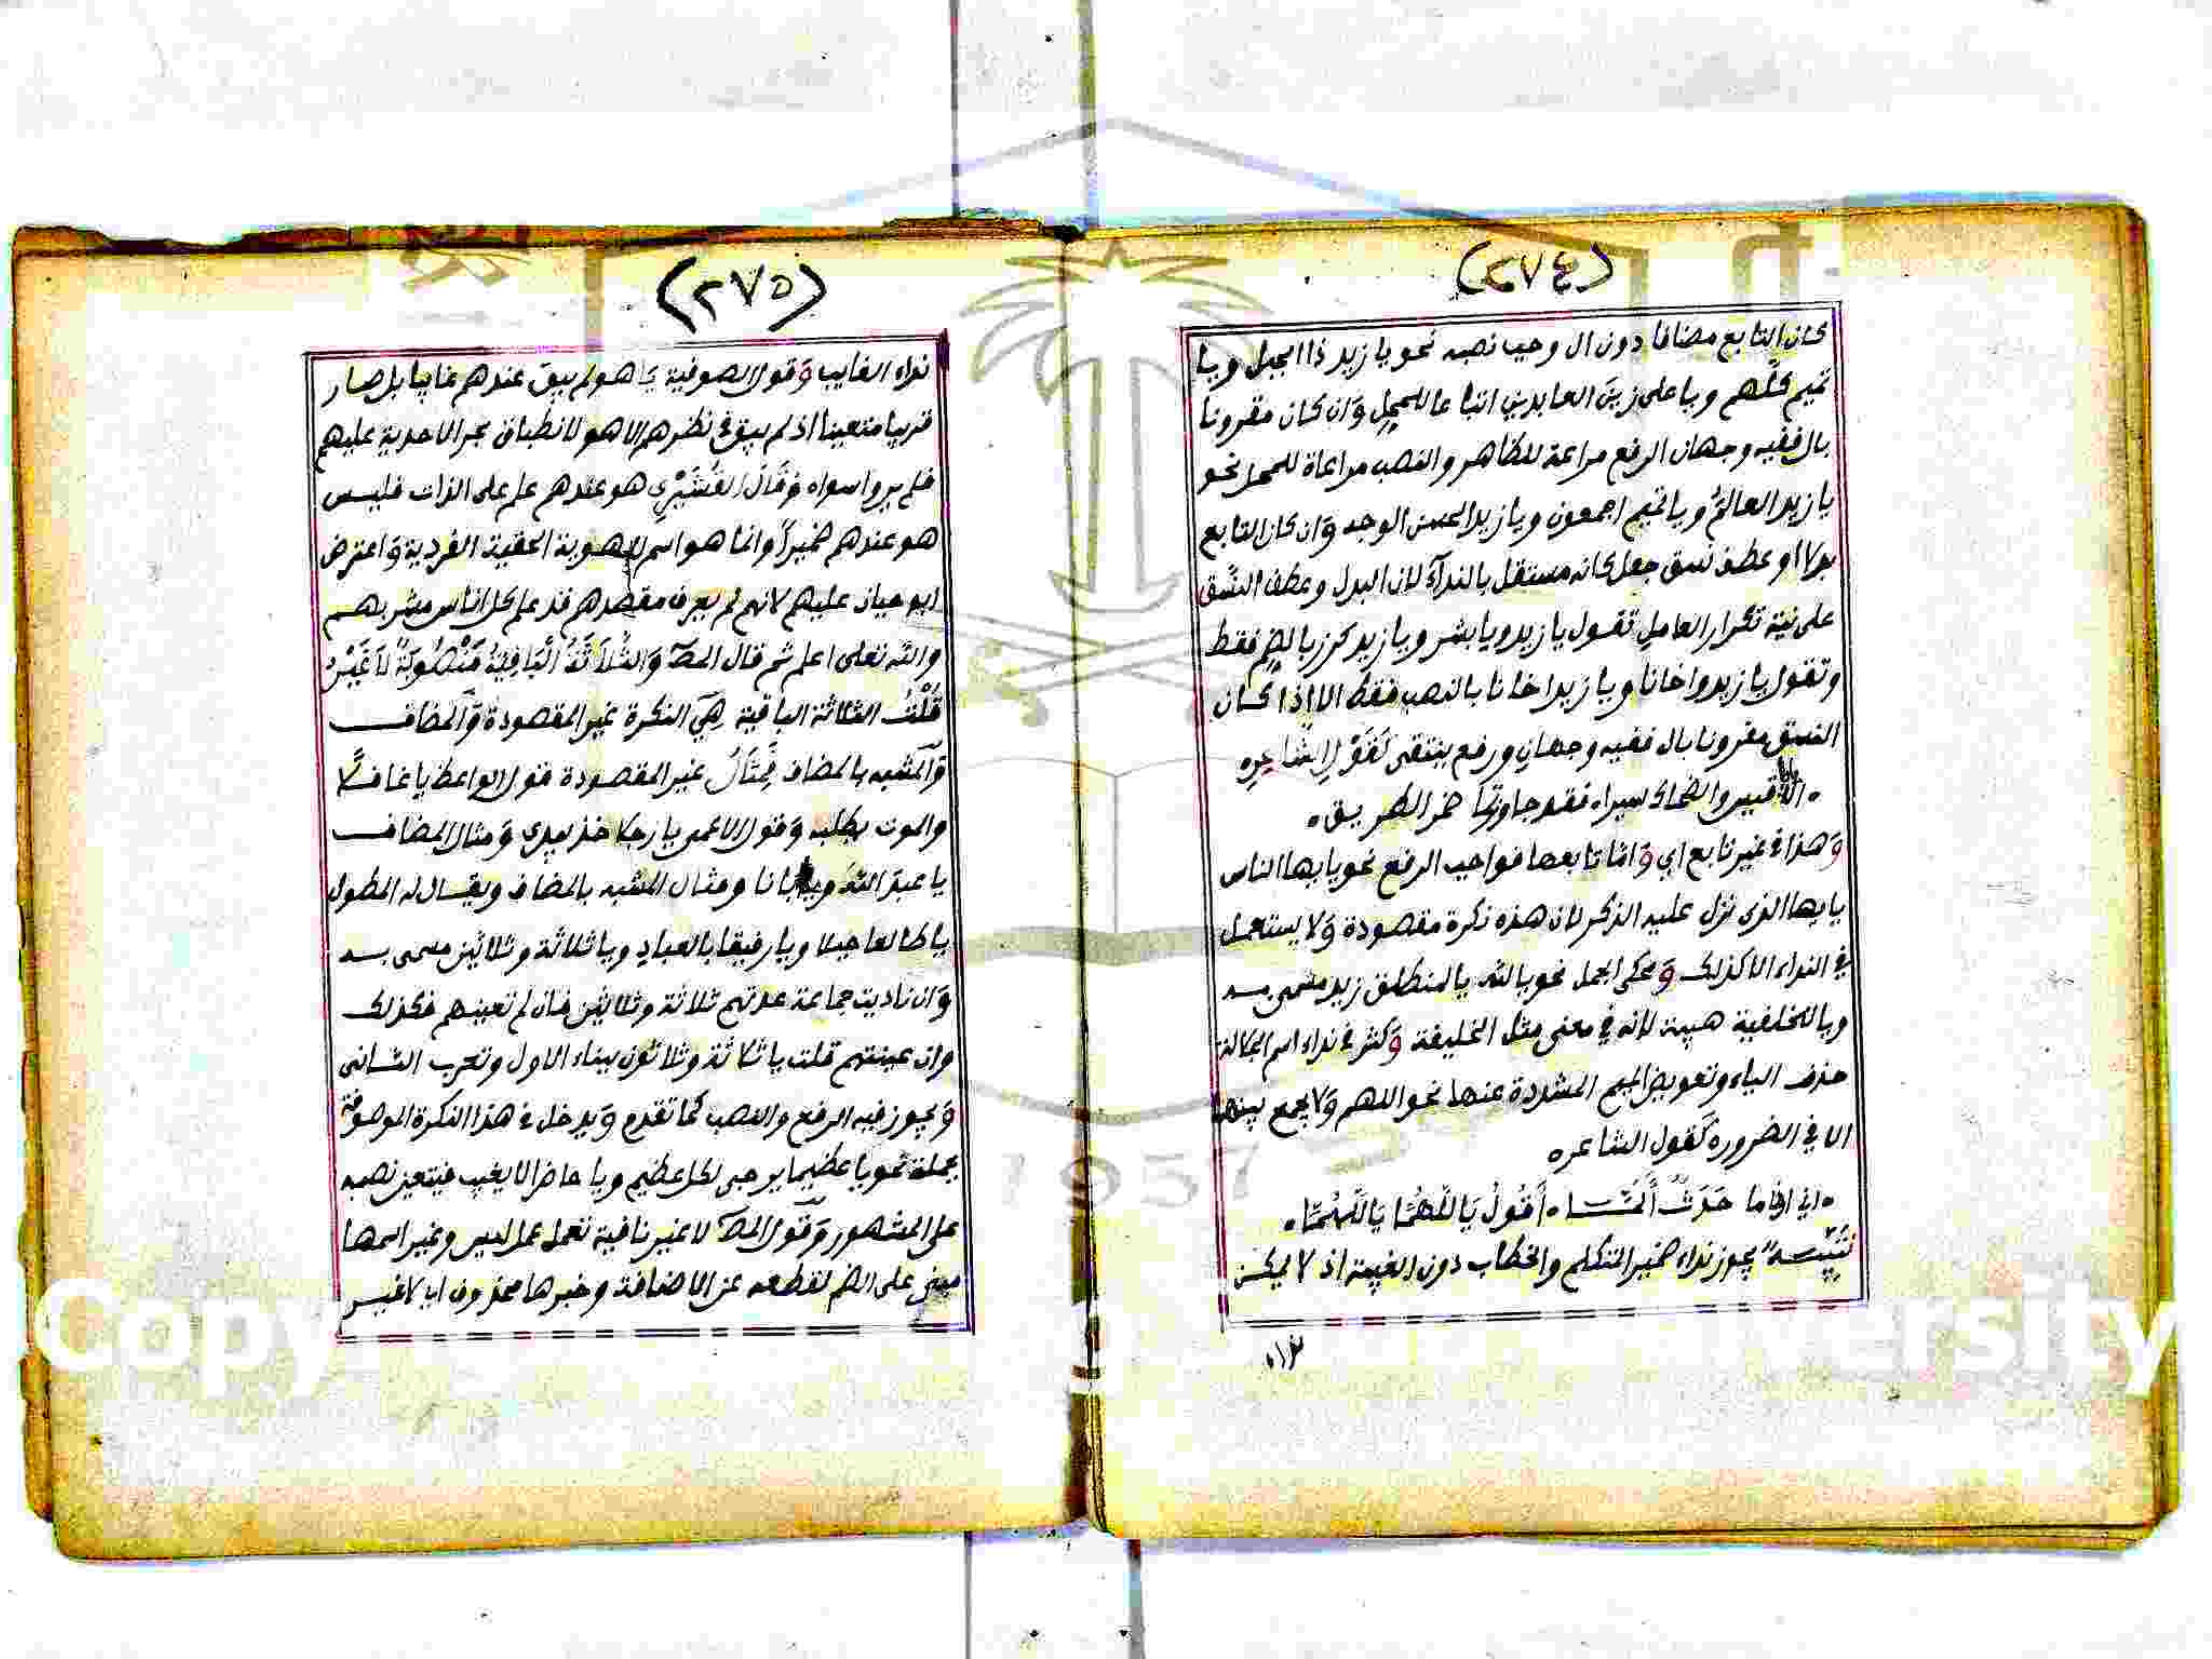 (٢٧٤)
كان التابع مضافا دون ال وجب نصبه نحو يا زيد ذا الجبل ويا
تميم كلهم ويا على زين العابدين اتباعا للمحل وان كان مقرونا
بال ففيه وجهان الرفع مراعة للظاهر والنصب مراعاة للمحل نحو
يا زيد العالم ويا تميم اجمعون ويا زيد الحسن الوجه وان كان التابع
بدلا او عطف نسق جعل كانه مستقل بالندآء لان البدل وعطف النسق
على نية تكرار العامل تقول يا زيد ويا بشر ويا زيد كرز بالضم فقط
وتقول يا زيد واخانا ويا زيد اخانا بالنصب فقط الا اذا كان
النسق مقرونا بال ففيه وجهان ورفع ينتقى كقول الشاعره
الا قيس والضحاك سيراه فقد جاوزتما خمر الطريق
وهذا في غير تابع اي واما تابعها فواجب الرفع نحو يايها الناس
يايها الذى نزل عليه الذكر لان هذه نكرة مقصودة ولا يستعمل
في النداء الا كذلك ومحكى الجمل نحو يا لله يا المنطلق زيد مسمى به
ويا الخليفة هيبة لانه في معنى مثل الخليفة وكثر في نداء اسم الجلالة
حذف الياء وتعويض الميم المشددة عنها نحو اللهم ولا يجمع بينهما
الا في الضروره كقول الشاعره
انى اذا ما حدث ألما ه أقول يا اللهما يا اللهما
تنبيه يجوز نداء ضمير المتكلم والخطاب دون الغيبة اذ لا يمكن
نداء
(٢٧٥)
نداء الغايب وقول الصوفية يا هو لم يبق عندهم غايبا بل صار
قريبا متعينا اذ لم يبق في نظرهم الا هو لانطباق بحر الاحدية عليهم
فلم يروا سواه وقال القشيري هو عندهم علم على الذات فليس
هو عندهم ضميرا وانما هو اسم للهوية الحقية الفردية واعترض
ابو حيان عليهم لانهم لم يعرف مقصدهم قد علم كل اناس مشربهم
والله تعلى اعلم ثم قال المصـ والثلاثة الباقية منصوبة لا غير
قلت الثلاثة الباقية هي النكرة غير المقصودة والمضاف
والمشبه بالمضاف فمثال غير المقصودة قول الواعظ يا غافلا
والموت يطلبه وقول الاعمى يا رجلا خذ بيدي ومثال المضاف
يا عبد الله ويا ابانا ومثال المشبه بالمضاف ويقال له المطول
يا طالعا جبلا ويا رفيقا بالعباد ويا ثلاثة وثلاثين مسمى به
وان ناديت جماعة عدتهم ثلاثة وثلاثين فان لم تعينهم فكذلك
وان عينتهم قلت يا ثلاثة وثلاثون ببناء الاول وتعرب الثانى
ويجوز فيه الرفع والنصب كما تقدم ويدخل في هذا النكرة الموصوفة
بجملة نحو يا عظيما يرجى لكل عظيم ويا حاضرا لا يغيب فيتعين نصبه
على المشهور وقول المصـ لا غير نافية تعمل عمل ليس وغير اسمها
مبنى على الضم لقطعه عن الاضافة وخبرها محذوف اي لا غير